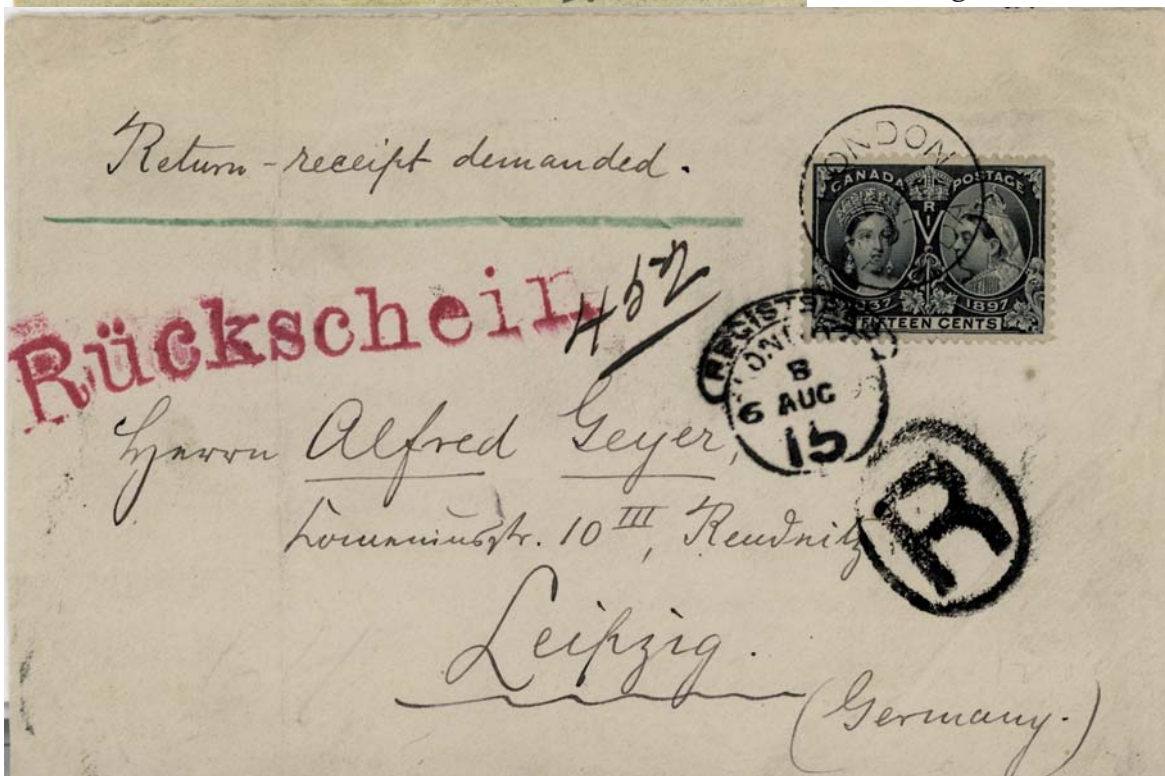 Return-receipt demanded.
LONDON
CANADA POSTAGE
R I
V
1837 1897
FIFTEEN CENTS
Rückschein
REGISTERED
LONDON
B
6 AUG
15
R
Herrn Alfred Geyer,
10 III, Reudnitz
Leipzig.
(Germany.)